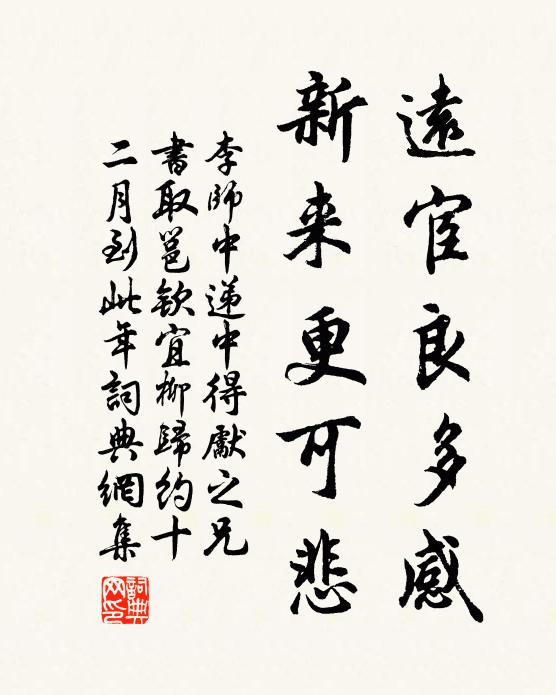 遠宦良多感
新来更可悲
李師中遞中得獻之兄
書取邕欽宜柳歸約十
二月到此年詞典網集
詞典
网印